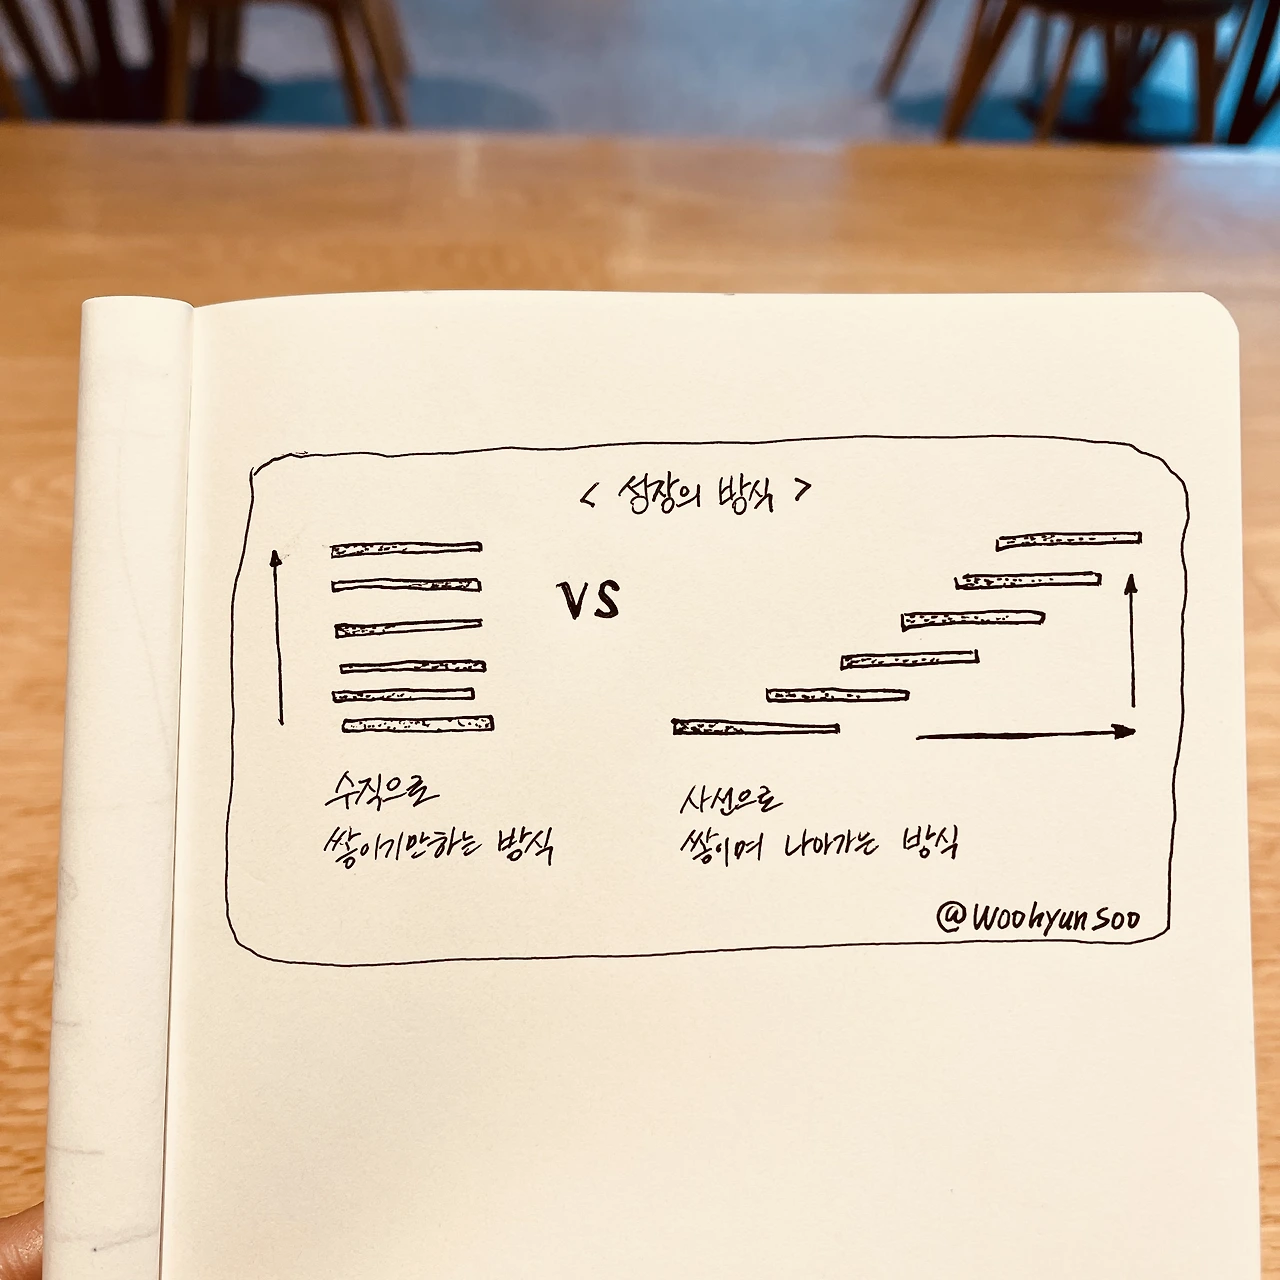 < 성장의 방식 >
VS
수직으로
쌓이기만하는 방식
사선으로
쌓이며 나아가는 방식
@woohyunsoo